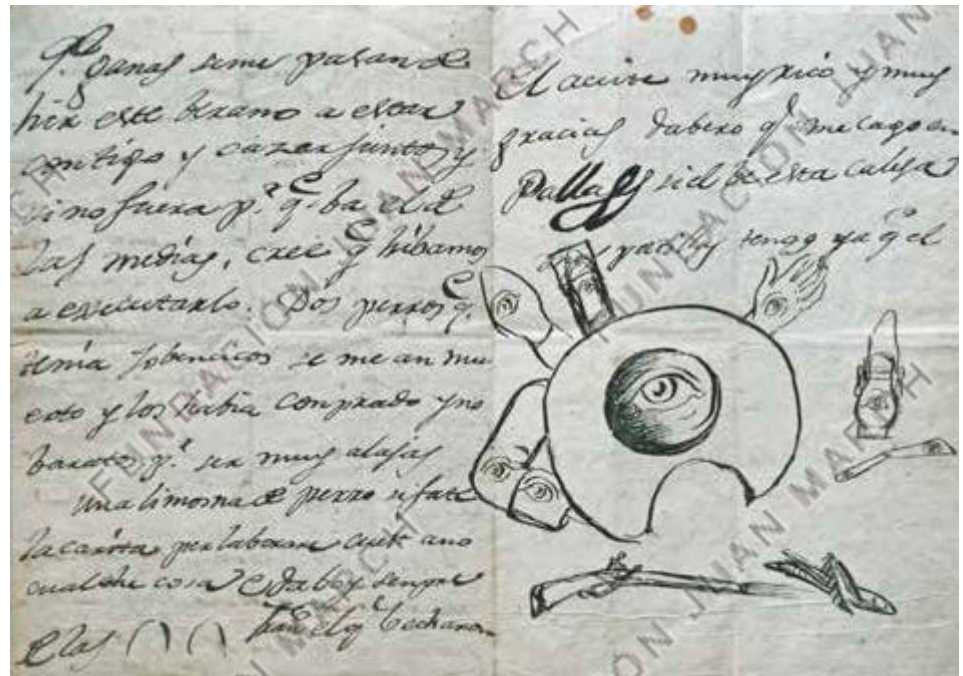 q.e ganas se me pasan de
hir este berano a estar
contigo y cazar juntos y
si no fuera p.r q.e ba el de
las medias, cree q.e hibamos
a executarlo. Dos perros q.e
tenia jobencicos se me an mu
erto y los habia comprado y no
baratos, p.r ser muy alajas
Una limosna de perro si fate
la carita per
cosa
e las
El aceite muy rico y muy
gracias q.e me cago en
si el be esta calesa
y tengo ya q.e el
FUNDACION JUAN MARCH